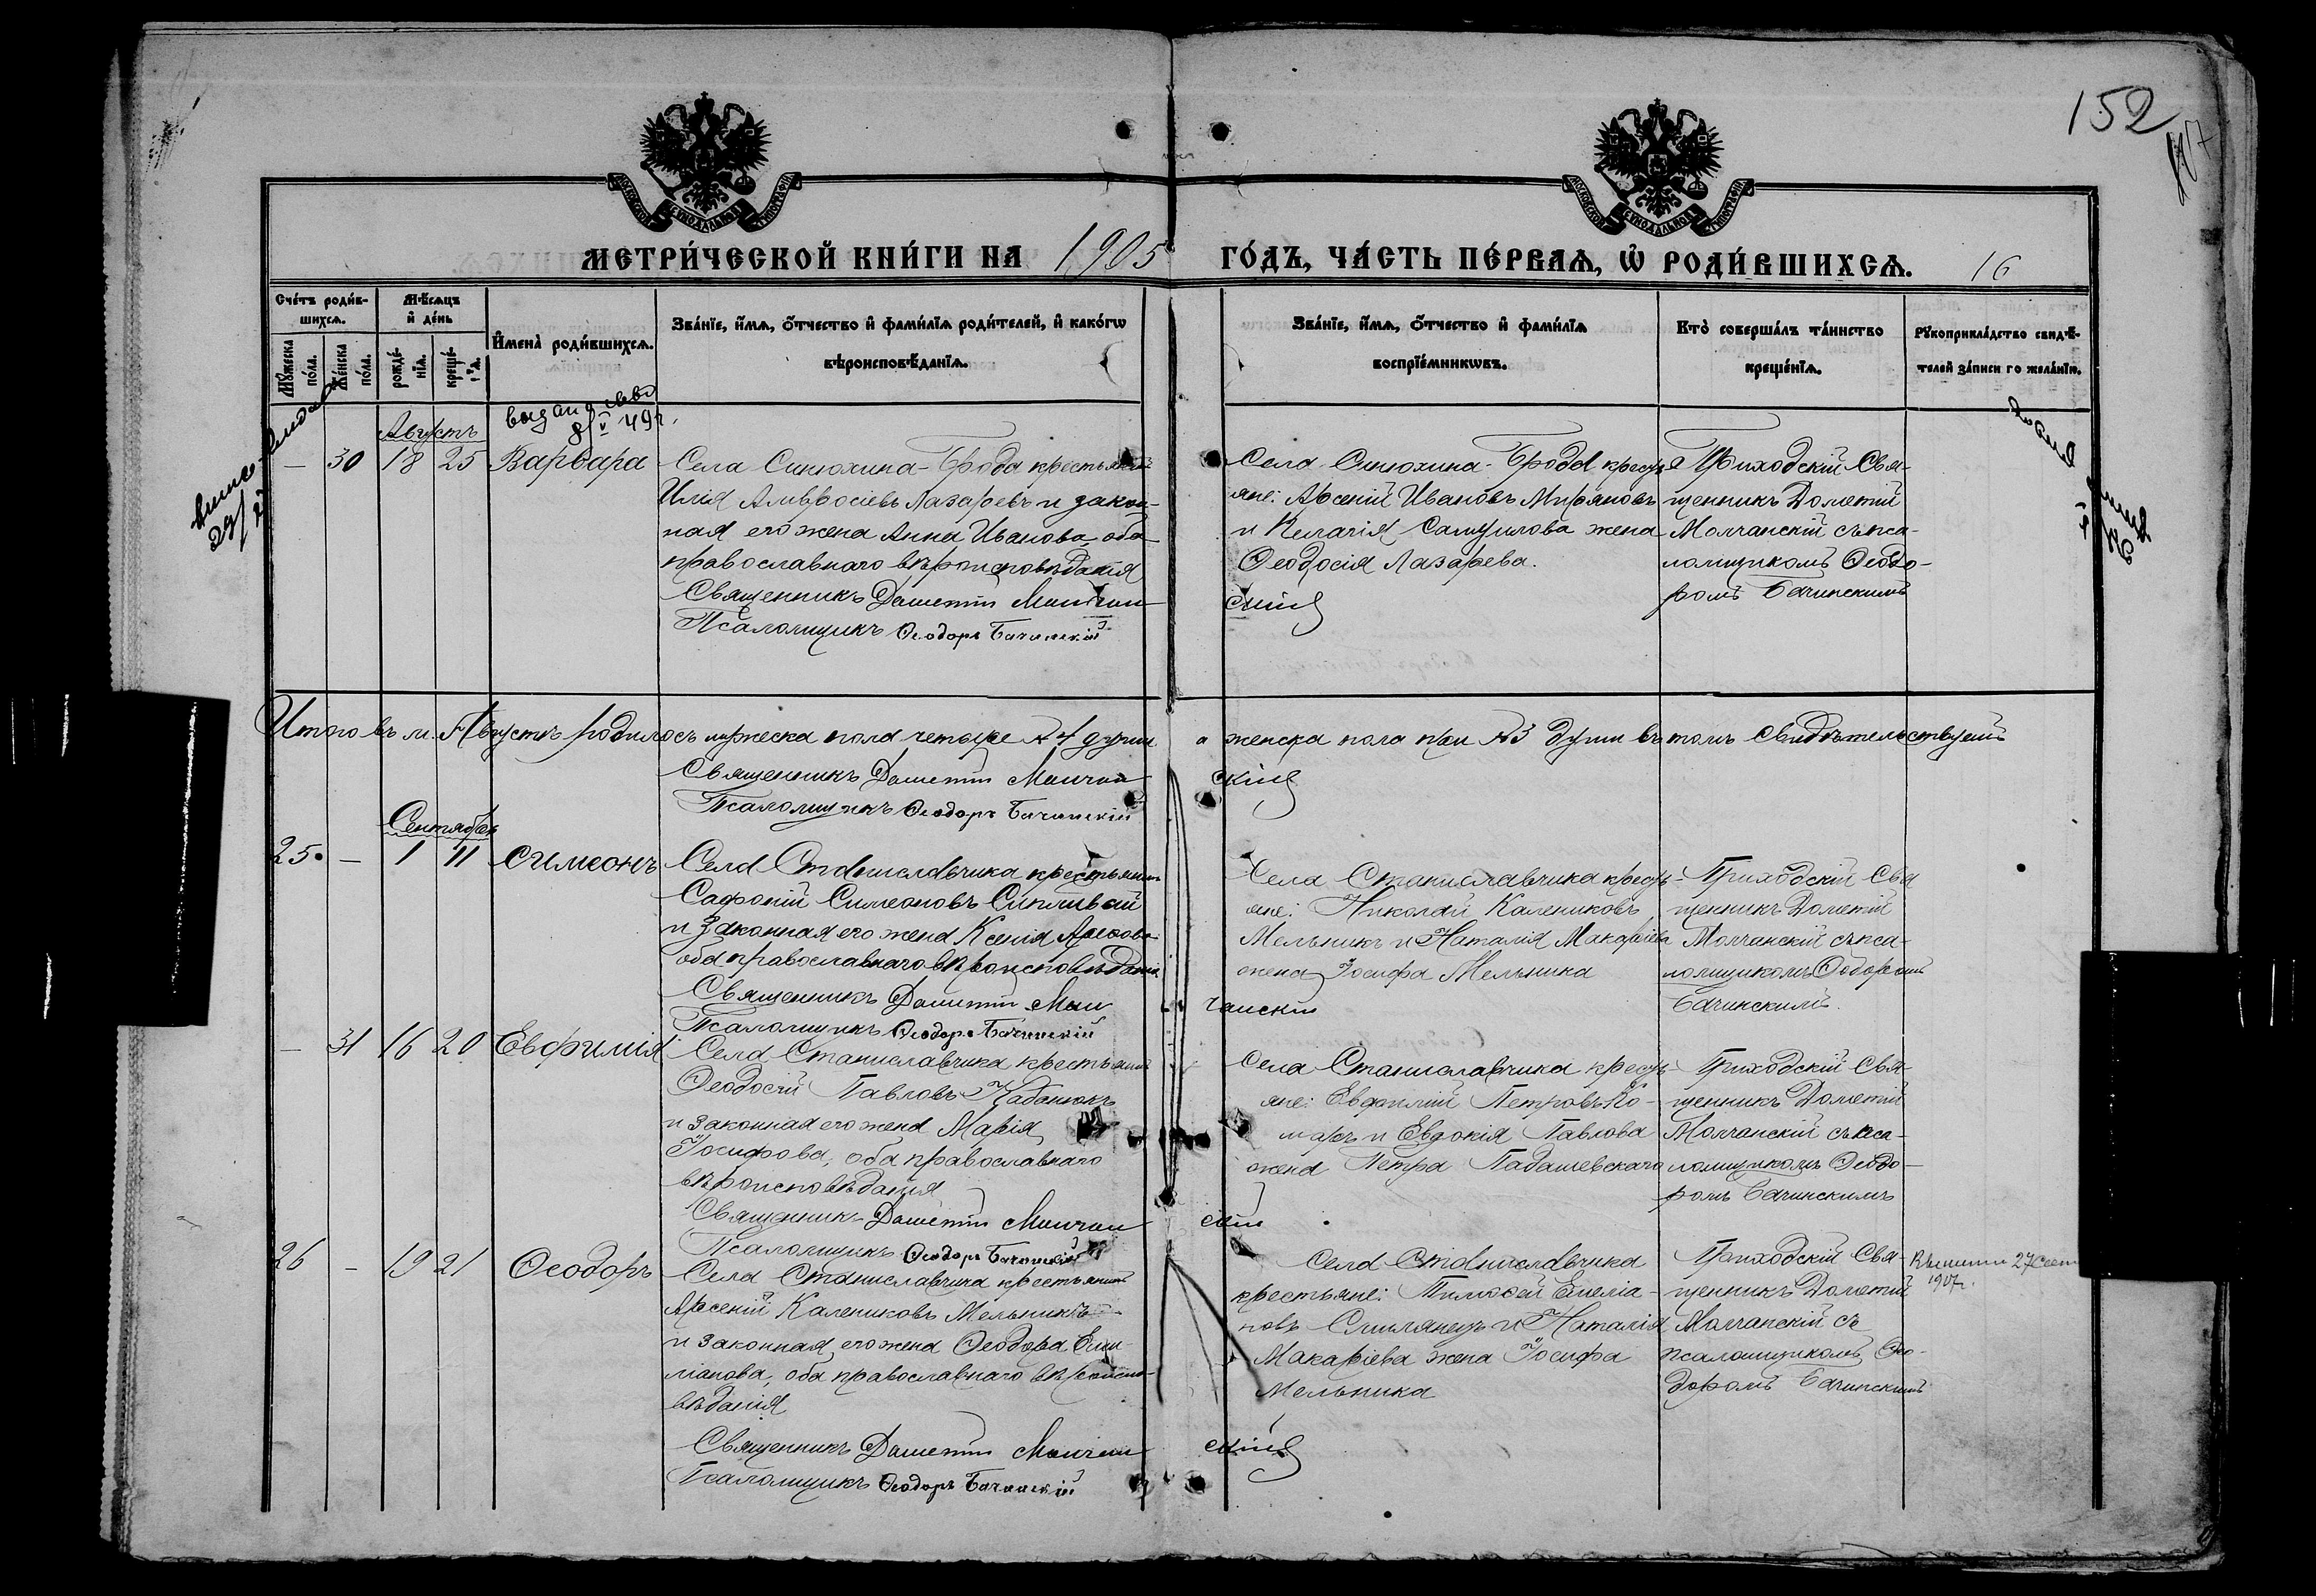 152
МОСКОВСКОЙ СѴНОДАЛЬНОЙ ТИПОГРАФІИ
МОСКОВСКОЙ СѴНОДАЛЬНОЙ ТИПОГРАФІИ
МЕТРИ́ЧЕСКОЙ КНИ́ГИ НА 1905 ГО́ДЪ, ЧА́СТЬ ПЕ́РВАѦ, Ѡ РОДИ́ВШИХСѦ. 16
Сче́тъ роди́в-
шихсѧ.
Мꙋ́жеска по́ла.
Же́нска по́ла.
Мѣ́сѧцъ
и҆ де́нь
рожде́-
нїѧ.
креще́-
нїѧ.
И҆мена̀ роди́вшихсѧ.
Зва́нїе, и҆́мѧ, ѻ҆́тчество и҆ фами́лїѧ роди́телей, и҆ како́гѡ
вѣроисповѣ́данїѧ.
Зва́нїе, и҆́мѧ, ѻ҆́тчество и҆ фами́лїѧ
воспрїе́мникѡвъ.
Кто̀ соверша́лъ та́инство
креще́нїѧ.
Рꙋкоприкла́дство свидѣ́-
телей за́писи по жела́нїю.
Августъ
— 30 18 25 Варвара
Села Синюхина-Брода крестьянинъ
Илія Амвросіевъ Лазаревъ и закон-
ная его жена Анна Иванова, оба
православнаго вѣроисповѣданія
Священникъ Дометій Молчан-
скій
Псаломщикъ Ѳеодоръ Бачинскій
Села Синюхина-Брода кресть-
яне: Арсеній Ивановъ Миряновъ
и Пелагія Самуилова жена
Ѳеодосія Лазарева.
Приходскій Свя-
щенникъ Дометій
Молчанскій съ пса-
ломщикомъ Ѳеодо-
ромъ Бачинскимъ
Итого въ м. Августѣ родилось мужеска пола четыре № 4 души а женска пола три №3 души въ томъ свидѣтельствуемъ
Священникъ Дометій Молчан
скій
Псаломщикъ Ѳеодоръ Бачинскій
Сентябрь
25 — 1 11 Симеонъ
Села Станиславчика крестьянинъ
Сафоній Симеоновъ
и законная его жена Ксенія
оба православнаго вѣроисповѣданія
Священникъ Дометій Мол
чанскій
Псаломщикъ Ѳеодоръ Бачинскій
Села Станиславчика кресть-
яне: Николай Калениковъ
Мельникъ и Наталія Макаріева
жена Іосифа Мельника
Приходскій Свя
щенникъ Дометій
Молчанскій съ пса-
ломщикомъ Ѳеодоромъ
Бачинскимъ.
— 31 16 20 Евфимія
Села Станиславчика крестьянинъ
Ѳеодосій Павловъ Кабанюкъ
и законная его жена Марія
Іосифова, оба православнаго
вѣроисповѣданія
Священникъ Дометій Молчан
скій
Псаломщикъ Ѳеодоръ Бачинскій
Села Станиславчика кресть-
яне: Петровъ Ко-
маръ и Евдокія Павлова
жена Петра Падашевскаго
Приходскій Свя-
щенникъ Дометій
Молчанскій съ пса-
ломщикомъ Ѳеодо-
ромъ Бачинскимъ
26 — 19 21 Ѳеодоръ
Села Станиславчика крестьянинъ
Арсеній Калениковъ Мельникъ
и законная его жена Ѳеодора Еми-
ліанова, оба православнаго вѣроиспо-
вѣданія
Священникъ Дометій Молчан
скій
Псаломщикъ Ѳеодоръ Бачинскій
Села Станиславчика
крестьяне: Тимоѳей Емеліа-
новъ Смилянецъ и Наталія
Макаріева жена Іосифа
Мельника
Приходскій Свя-
щенникъ Дометій
Молчанскій съ
псаломщикомъ Ѳео-
доромъ Бачинскимъ
27 Сент
1907 г.